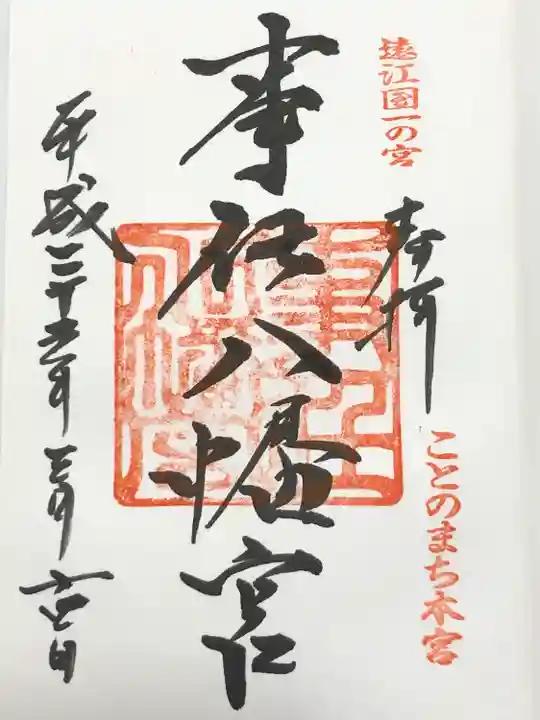 遠江国一の宮
奉拝
ことのまち本宮
事任八幡宮
平成二十五年三月